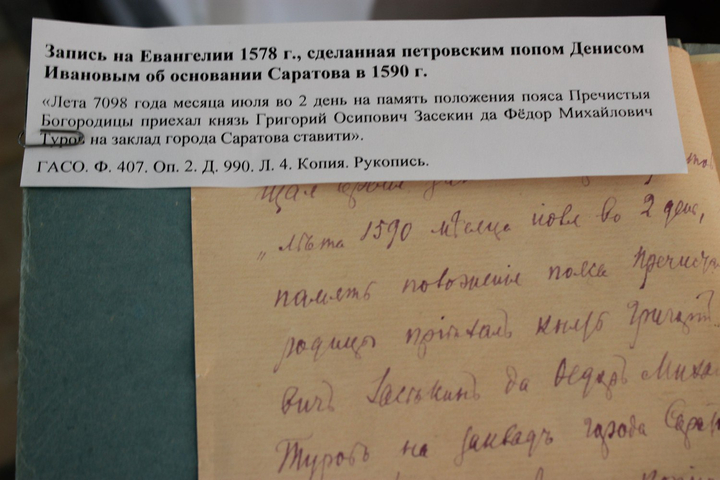 Запись на Евангелии 1578 г., сделанная петровским попом Денисом
Ивановым об основании Саратова в 1590 г.
«Лета 7098 года месяца июля во 2 день на память положения пояса Пречистыя
Богородицы приехал князь Григорий Осипович Засекин да Фёдор Михайлович
Туров на заклад города Саратова ставити».
ГАСО. Ф. 407. Оп. 2. Д. 990. Л. 4. Копия. Рукопись.
„лѣта 1590 мѣсяца іюля во 2 день,
память положенія пояса пречист
родицы пріѣхалъ князь Григор
вичъ Засѣкинъ да Ѳедоръ Миха
Туровъ на закладъ города Сара